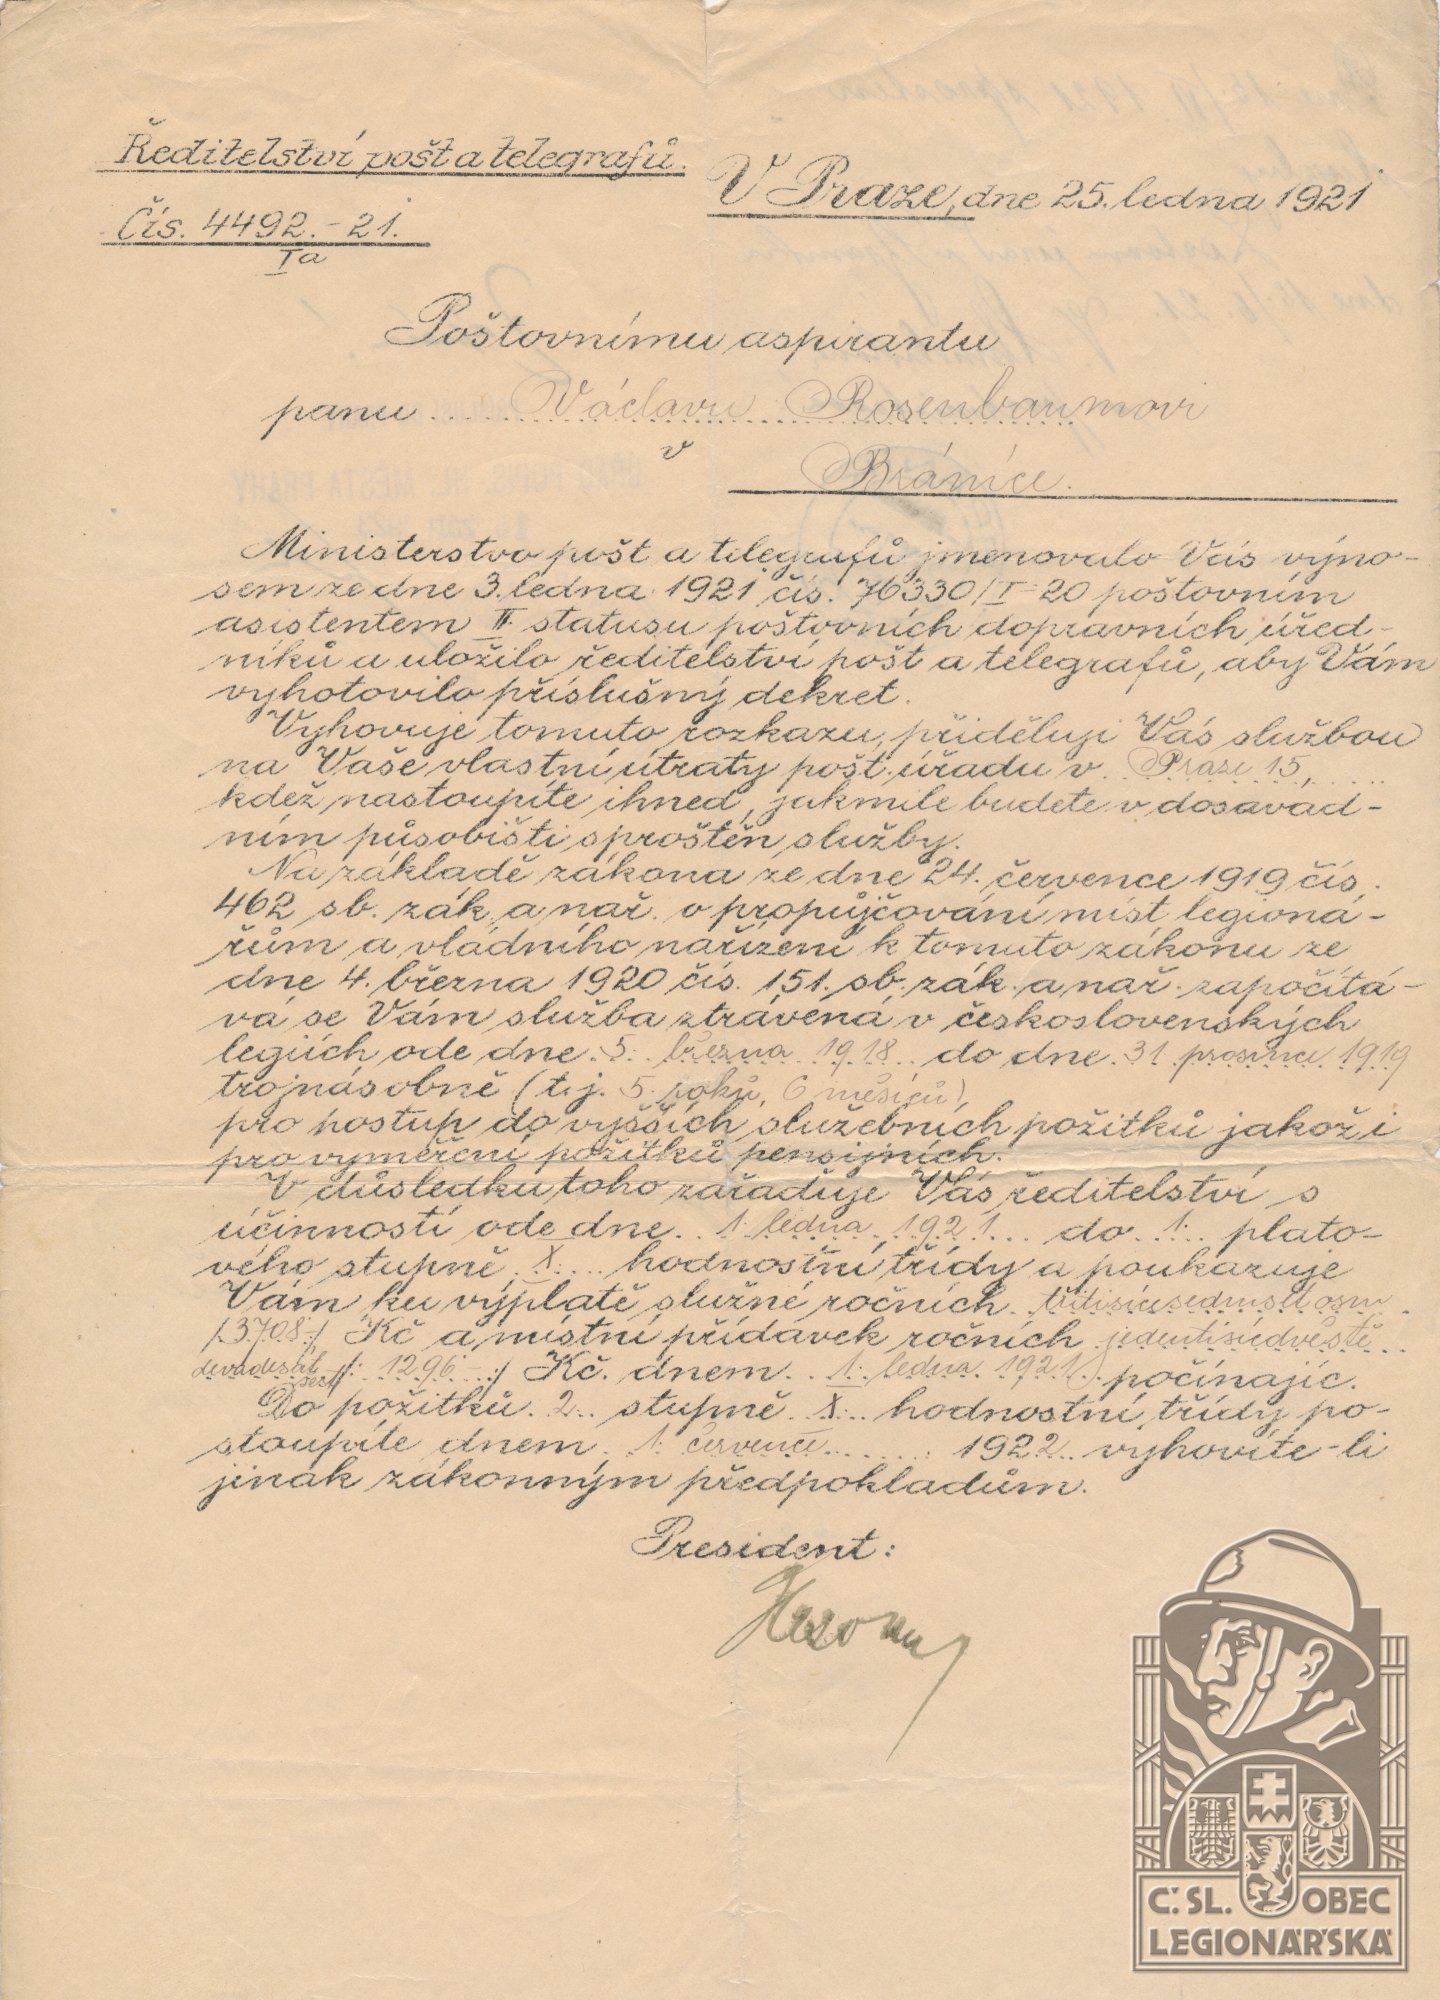 Ředitelství pošt a telegrafů.
V Praze, dne 25. ledna 1921
Čís. 4492.-21.
Ia
Poštovnímu aspirantu
panu Václavu Rosenbaumovi
v
Bráníce.
Ministerstvo pošt a telegrafů jmenovalo Vás výno-
sem ze dne 3. ledna 1921 čís. 76330/I-20 poštovním
asistentem II. statusu poštovních dopravních úřed-
níků a uložilo ředitelství pošt a telegrafů, aby Vám
vyhotovilo příslušný dekret.
Vyhovuje tomuto rozkazu, přiděluji Vás službou
na Vaše vlastní útraty pošt. úřadu v Praze 15,
kdež nastoupíte ihned, jakmile budete v dosavad-
ním působišti sproštěn služby.
Na základě zákona ze dne 24. července 1919 čís.
462 sb. zák. a nař. o propůjčování míst legioná-
řům a vládního nařízení k tomuto zákonu ze
dne 4. března 1920 čís. 151. sb. zák. a nař. započítá-
vá se Vám služba ztrávená v československých
legiích ode dne 5. března 1918 do dne 31. prosince 1919
trojnásobně (t.j. 5 roků, 6 měsíců),
pro postup do vyšších služebních požitků jakož i
pro vyměření požitků pensijních.
V důsledku toho zařaďuje Vás ředitelství s
účinností ode dne 1. ledna 1921 do 1. plato-
vého stupně X. hodnostní třídy a poukazuje
Vám ku výplatě služné ročních třitisícesedmsetosm
/:3708:/ Kč a místní přídavek ročních jedentisícdvěstě
devadesátšest /: 1296 :/ Kč. dnem 1. ledna 1921 počínajíc.
Do požitků 2. stupně X. hodnostní třídy po-
stoupíte dnem 1. července 1922 vyhovíte-li
jinak zákonným předpokladům.
President:
Č.SL. OBEC
LEGIONÁŘSKÁ